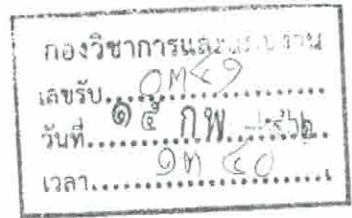 กองวิชาการและแผนงาน
เลขรับ ๐๓๔๑
วันที่ ๑๕ ก.พ. ๒๕๖๒
เวลา ๑๓ ๔๐